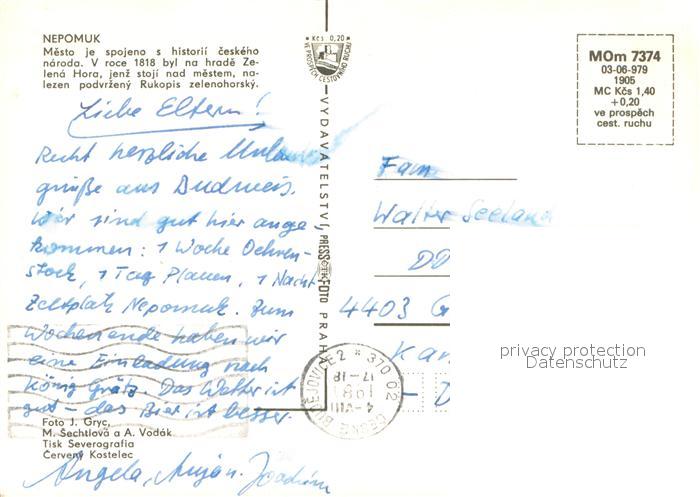 NEPOMUK
Město je spojeno s historií českého
národa. V roce 1818 byl na hradě Ze-
lená Hora, jenž stojí nad městem, na-
lezen podvržený Rukopis zelenohorský.
Kčs 0,20
VE PROSPĚCH CESTOVNÍHO RUCHU
MOm 7374
03-06-979
1905
MC Kčs 1,40
+0,20
ve prospěch
cest. ruchu
Liebe Eltern!
Recht herzliche Urlaubs
grüße aus Budweis.
Wir sind gut hier ange
kommen: 1 Woche Ochsen-
stock, 1 Tag Plauen, 1 Nacht
Zeltplatz Nepomuk. Zum
Wochenende haben wir
eine Einladung nach
König Grätz. Das Wetter ist
gut – das Bier ist besser.
Angela, Joachim
VYDAVATELSTVÍ, PRESSFOTO PRAHA
Fam
Walter Seeland
DD
4403 G
Kan
ČESKÉ BUDĚJOVICE 2 * 370 02
17-18
4-VIII
privacy protection
Datenschutz
Foto J. Gryc,
M. Šechtlová a A. Vodák
Tisk Severografia
Červený Kostelec